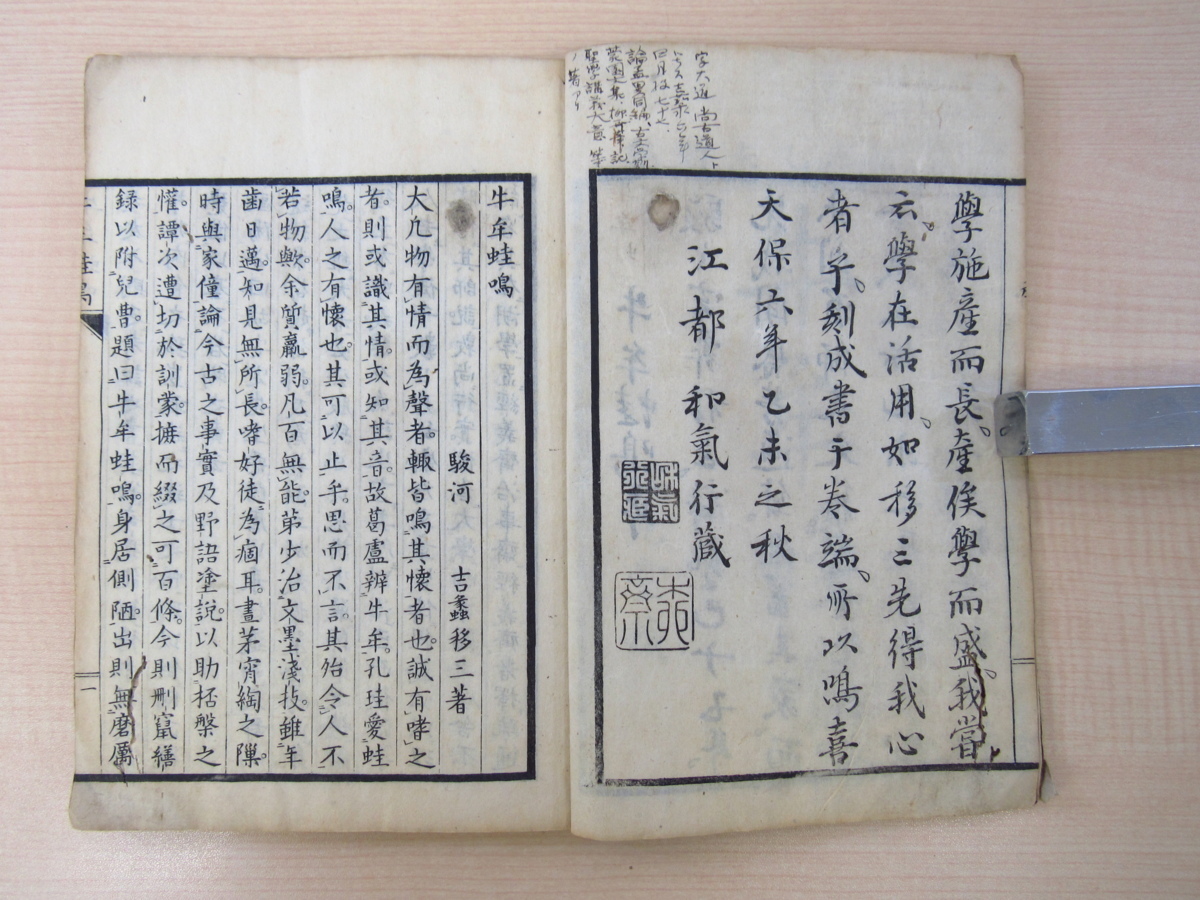 字大進 尚古道人ト
四月後七十七
學施產而長產俟學而盛我嘗
云學在活用如移三先得我心
者乎刻成書于卷端所以鳴喜
天保六年乙未之秋
江都 和氣行藏
和氣行藏
牛牟蛙鳴
駿河 吉蠡移三著
大凡物有情而為聲者輙皆鳴其懷者也誠有哮之
者則或識其情或知其音故葛盧辨牛牟孔珪愛蛙
鳴人之有懷也其可以止乎思而不言其殆令人不
若物歟余質羸弱凡百無能苐少治文墨淺技雖年
齒日邁知見無所長哮好徒為痼耳晝茅宵綯之隟
時與家僮論今古之事實及野語塗說以助栝槃之
懽譚次遭切於訓蒙摭而綴之可百條今則刪竄繕
録以附兒曹題曰牛牟蛙鳴身居側陋出則無磨厲
一